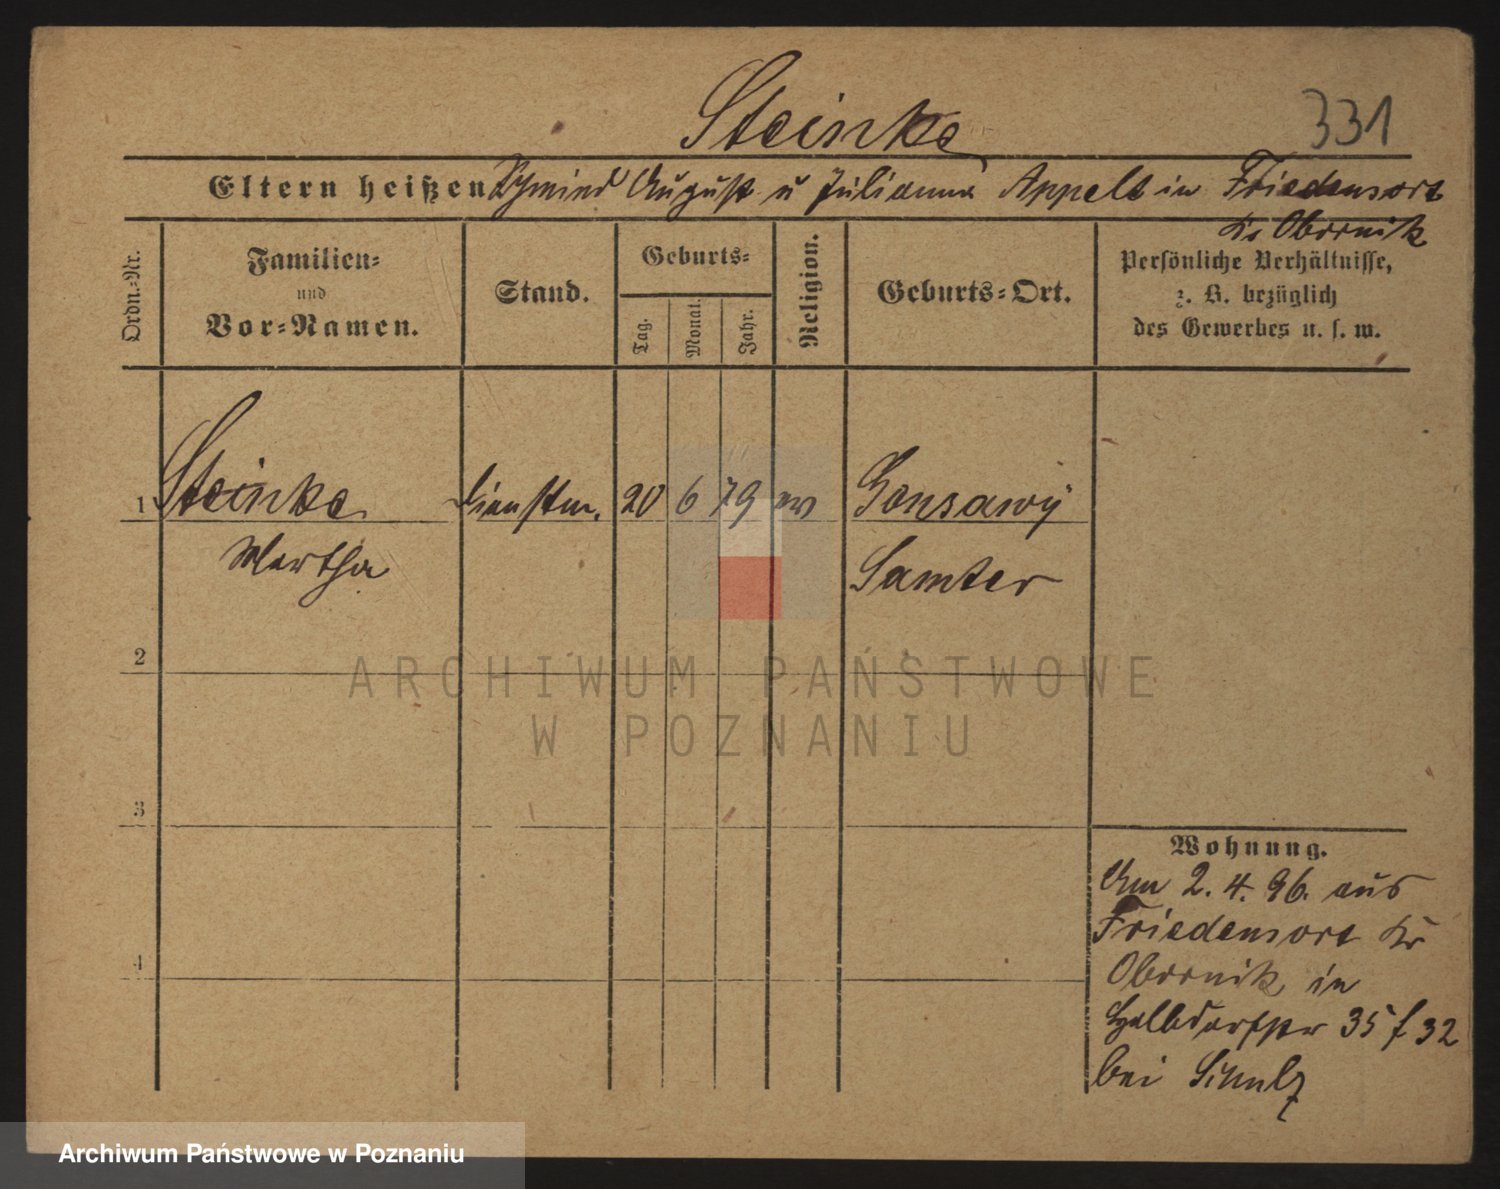 Steinke
331
Eltern heißen Schmied August u Julianna Appelt in Friedensort
Kr Obornik
Ordn.-Nr.
Familien-
und
Vor-Namen.
Stand.
Geburts-
Tag.
Monat.
Jahr.
Religion.
Geburts-Ort.
Persönliche Verhältnisse,
z. B. bezüglich
des Gewerbes u. s. w.
1 Steinke Dienstm. 20 6 79 ev Gonsawy
Martha Samter
2
3
4
Wohnung.
Am 2. 4. 96. aus
Friedensort Kr
Obornik in
Halbdorfstr 35 f 32
bei Schulz
ARCHIWUM PAŃSTWOWE
W POZNANIU
Archiwum Państwowe w Poznaniu